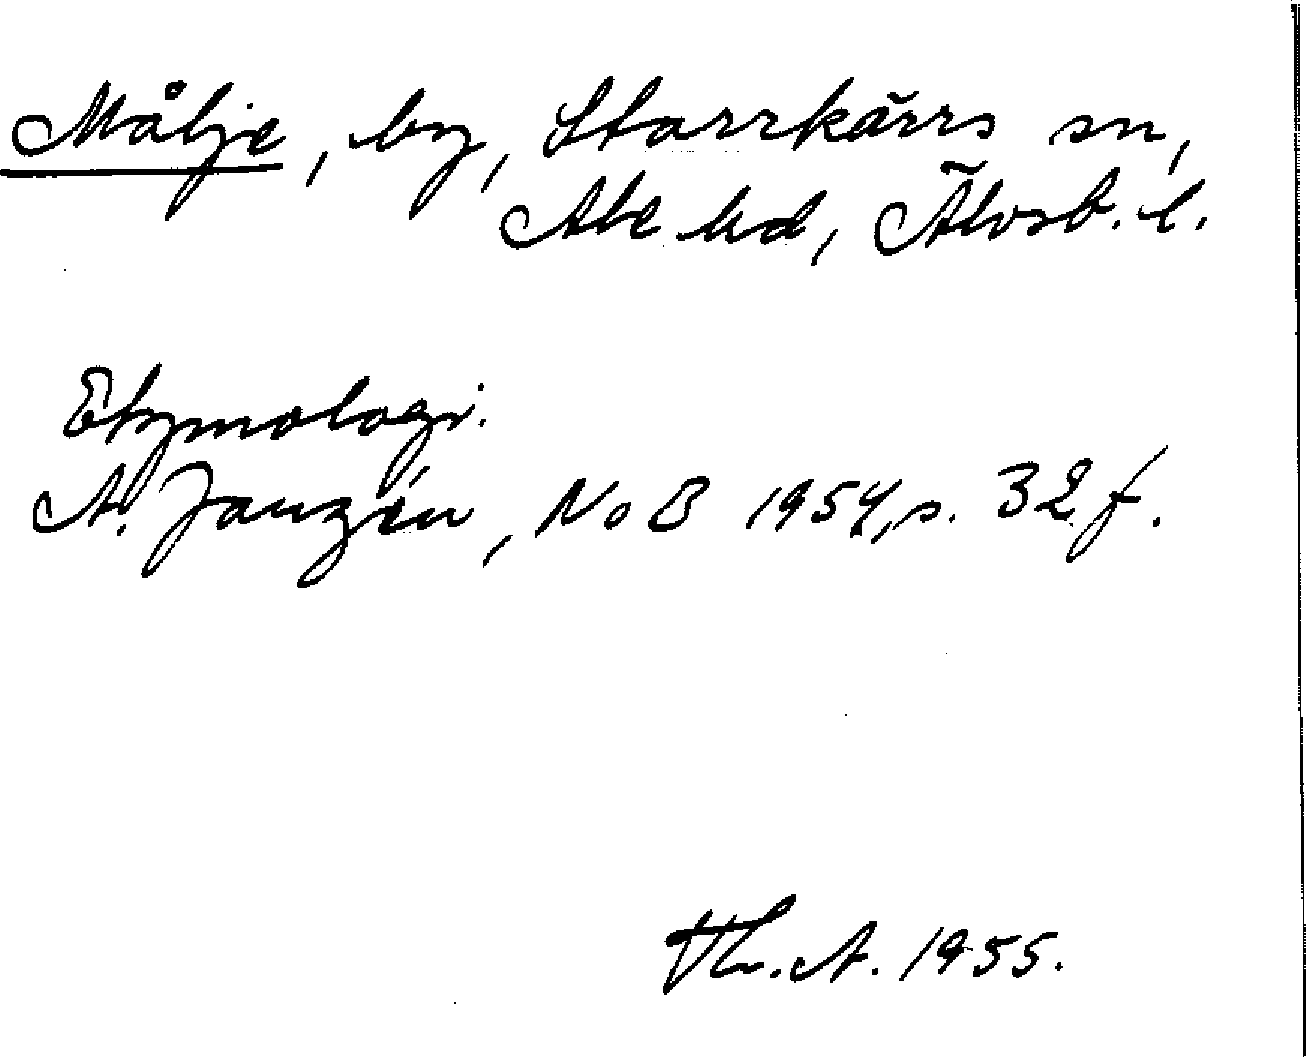 Målje, by, Starrkärrs sn,
Ale hd, Älvsb. l.
Etymologi.
A. Janzén, NoB 1954, s. 32 f.
Th. A. 1955.